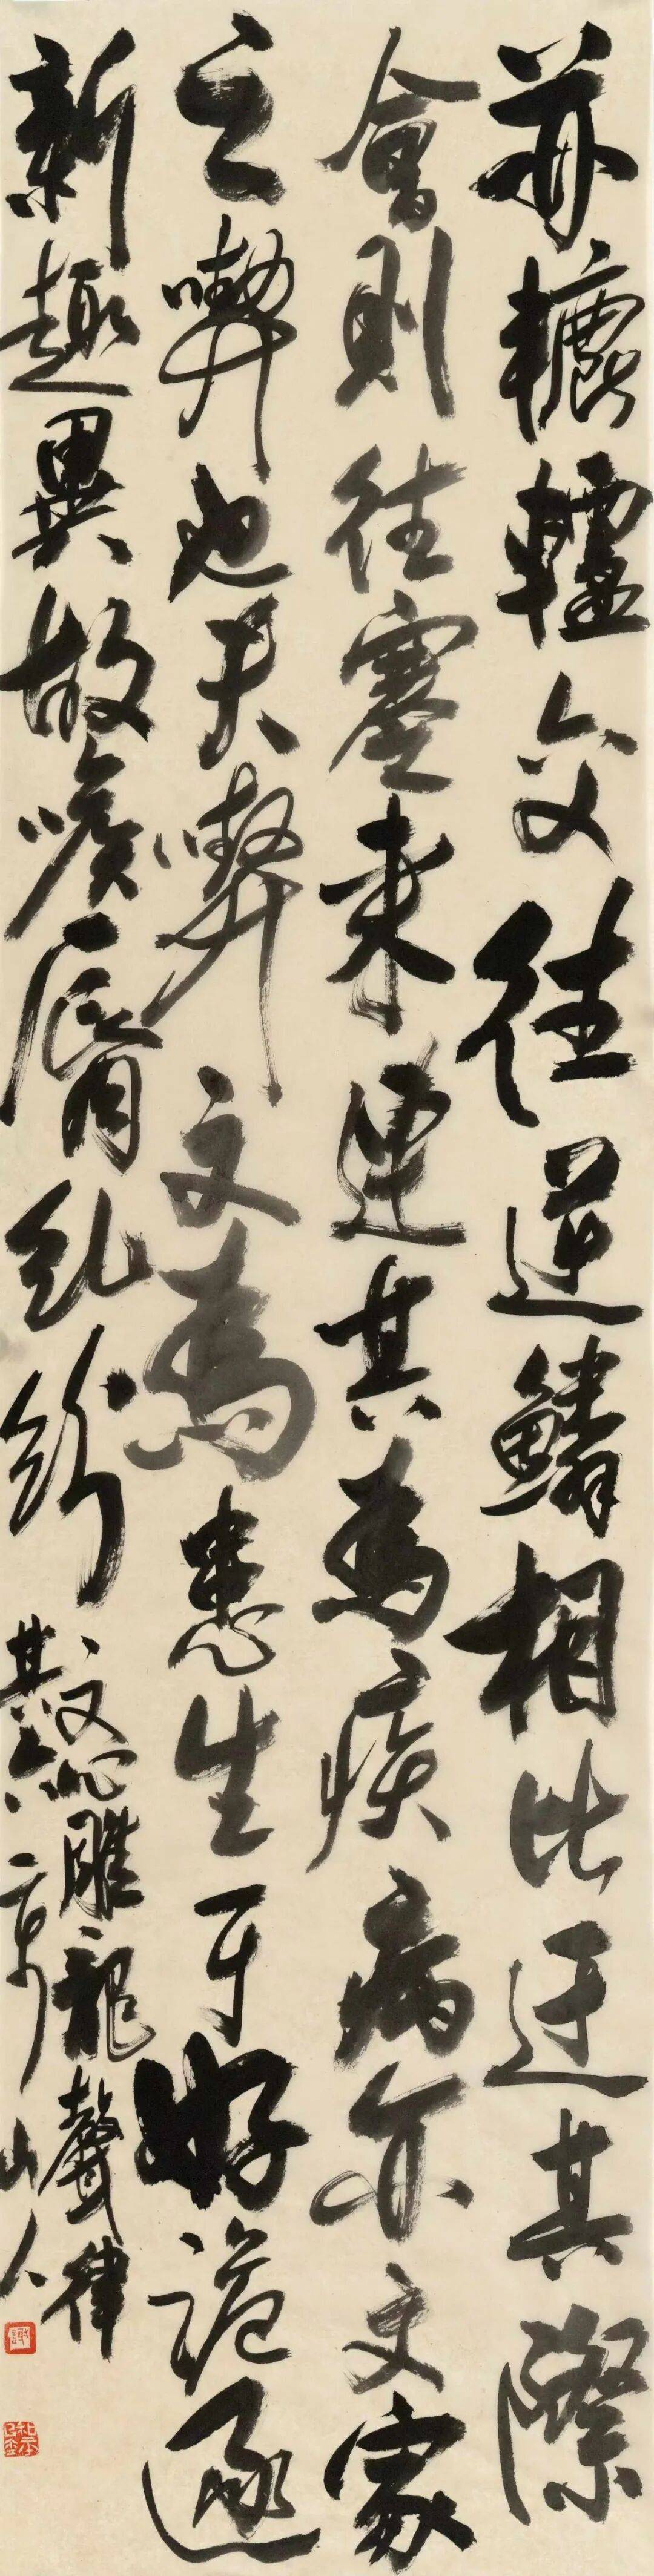 並轆轤交往逆鱗相比迂其際
會則往蹇來連其為疾病亦文家
之喫也夫喫文為患生于好詭逐
新趣異故喉脣糺紛
文心雕龍聲律
其六 京山人